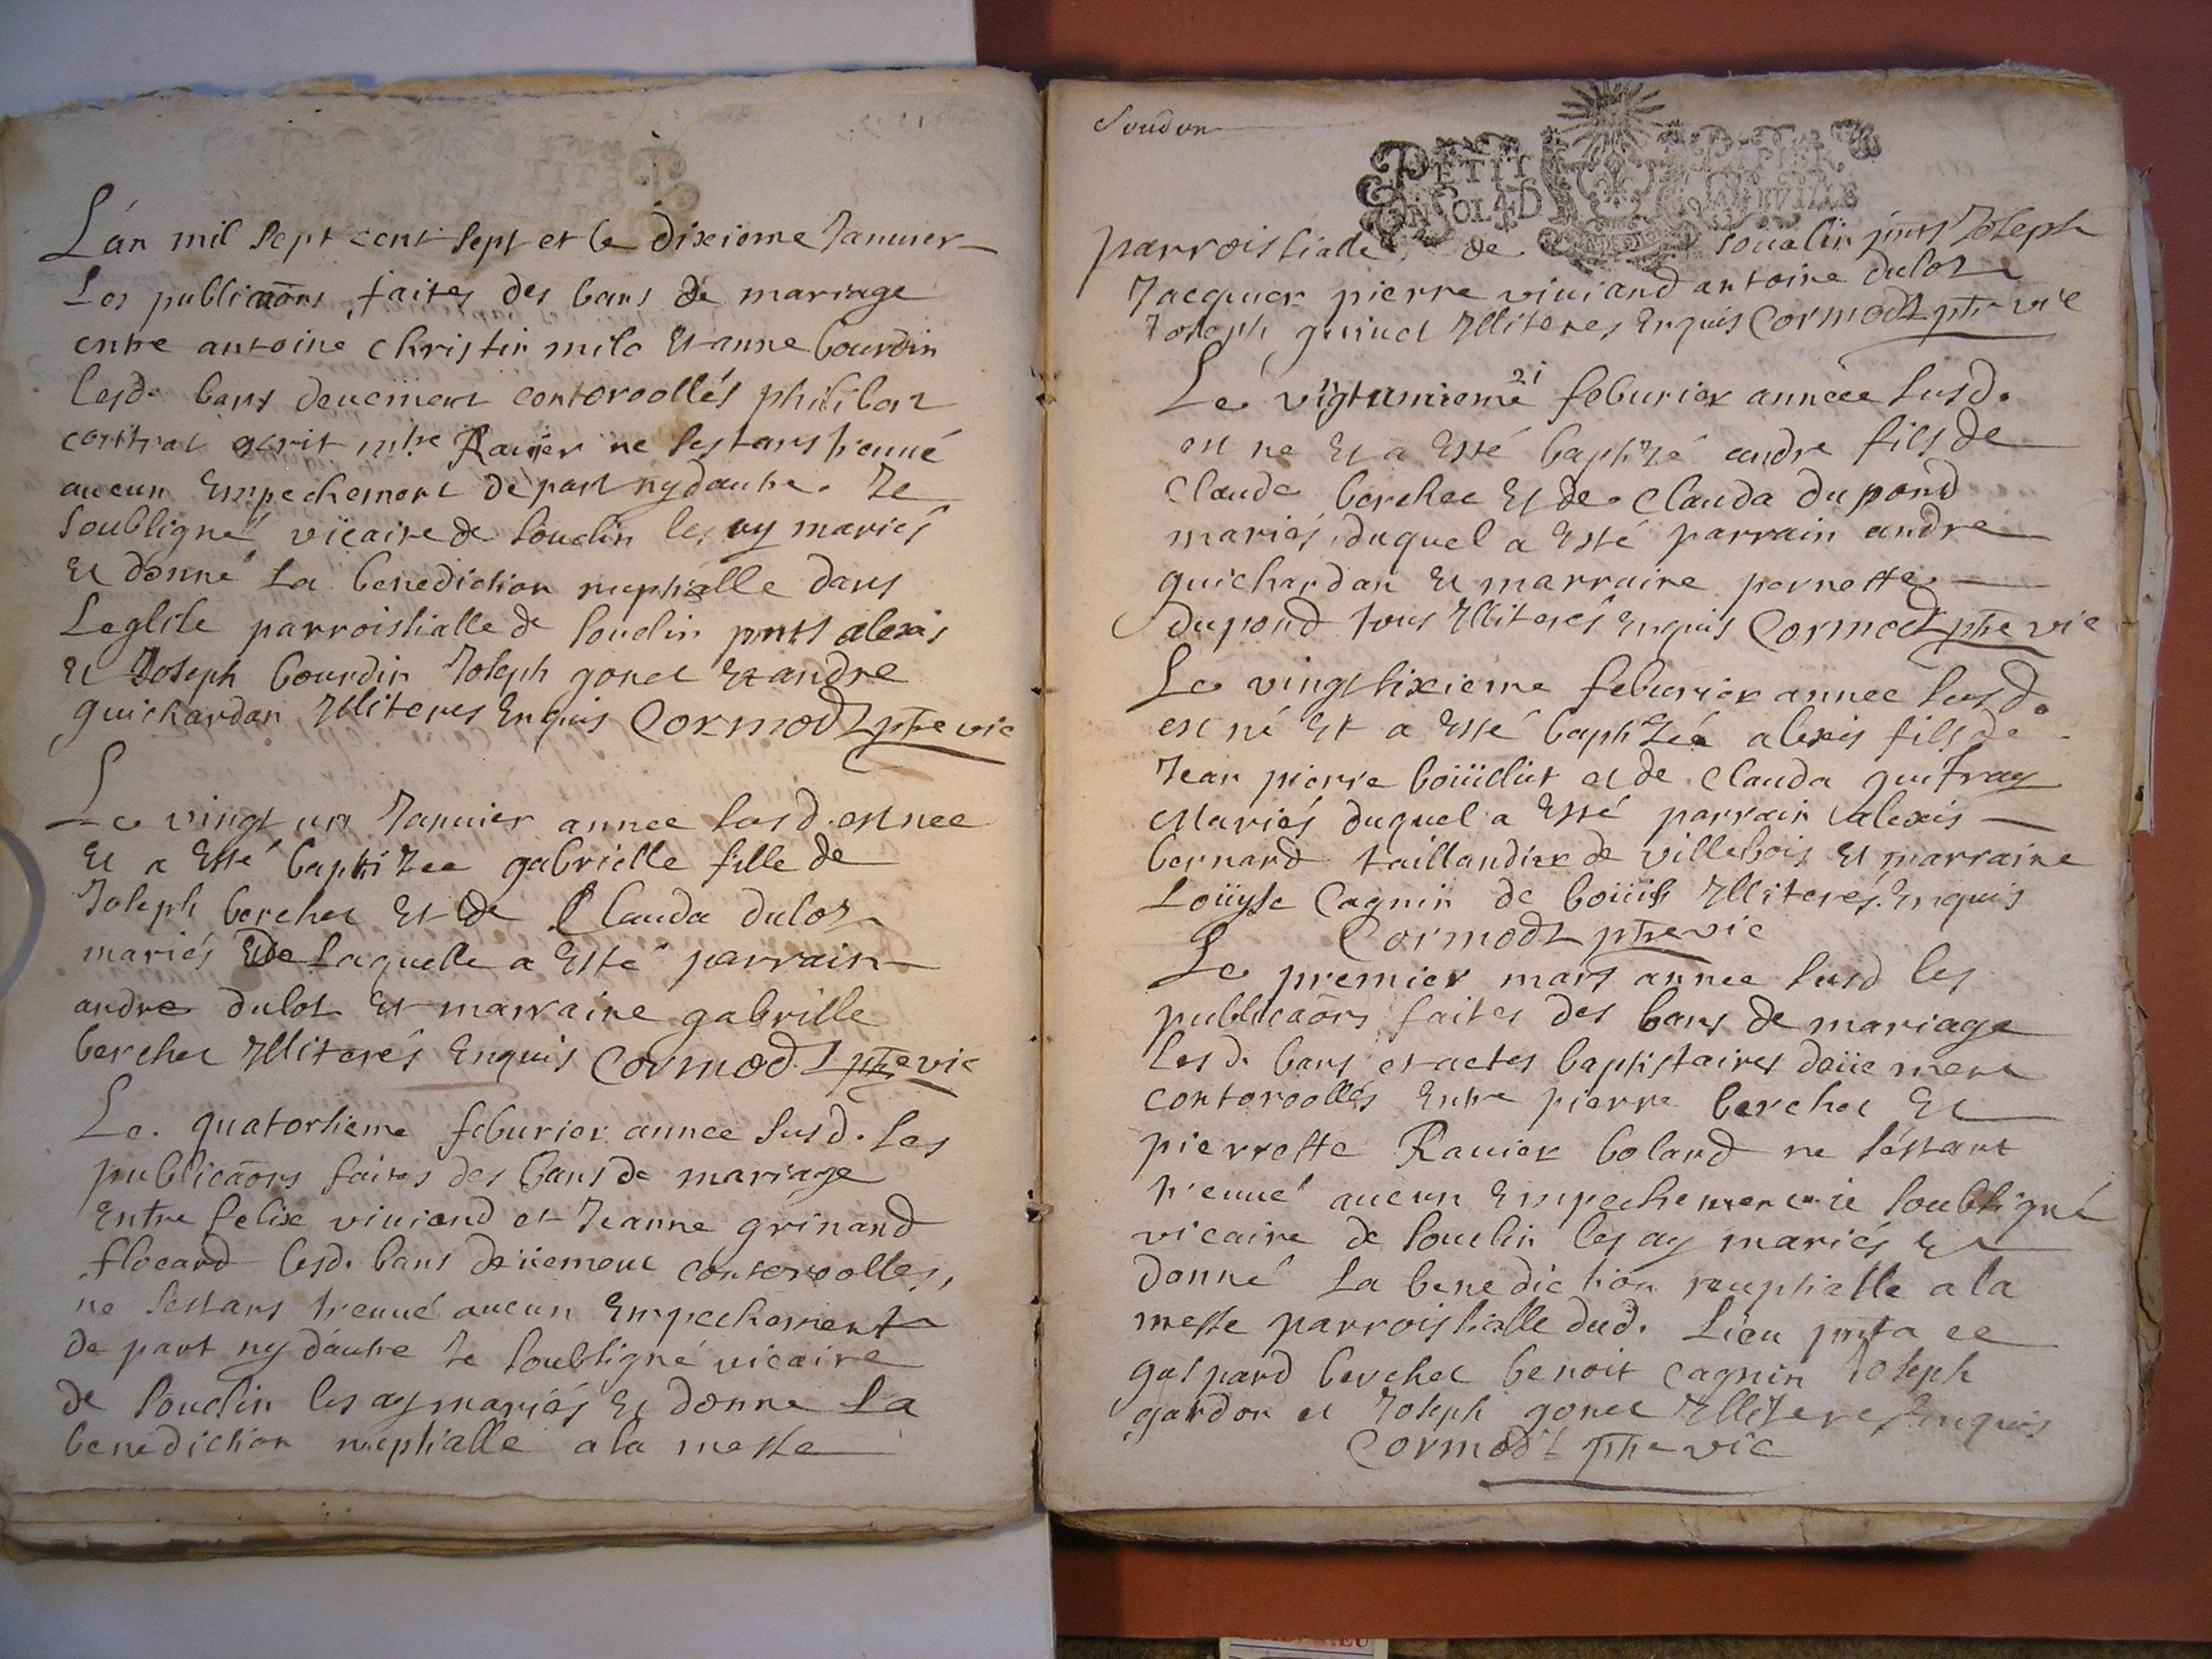 L'an mil sept cent sept et le dixieme Januier
Les publicaõns faites des bans de mariage
entre antoine christin mile et anne bourdin
lesd. bans deuement contoroollés philibert
contrat escrit mtre Rauier ne sestans treuué
aucun empechement de part ny dautre. Je
soubsigné vicaire de soudin les ay mariés
et donné la benediction nuptialle dans
Leglise parroissialle de soudin pnts alexis
et Joseph bourdin Joseph gonet et andre
guichardan Illiteres enquis Cormod ptre vic
Le vingt un Januier annee susd. est nee
et a esté baptizee gabrielle fille de
Joseph berchet et de Clauda dulot
mariés De laquelle a esté parrain
andre dulot et marraine gabrille
berchet Illiterés enquis Cormod ptre vic
Le. quatorsieme feburier annee susd. les
publicaõns faites des bans de mariage
entre felix viuiand et Jeanne grinand
flocard lesd. bans deüement contoroolles,
ne sestans treuué aucun empechement
de part ny dautre Je soubsigné vicaire
de soudin les ay mariés et donne la
benediction nuptialle a la messe
Soudon
PETIT PAPIER
UN SOL 4 D LA FEUILLE
parroissialle de soudin pnts Joseph
Jacquier pierre viuiand antoine dulot
Joseph guinet Illiteres enquis Cormod ptre vic
21
Le vigtunieme feburier annéee susd.
est ne et a esté baptizé andre fils de
Claude berchet et de Clauda dupond
mariés, duquel a esté parrain andre
guichardan et marraine pernette
dupond tous Illiterés enquis Cormod ptre vic
Le vingtsixieme feburier annee susd.
est né et a esté baptizée alexis fils de
Jean pierre boüillut et de Clauda guifray
Mariés duquel a esté parrain alexis
bernard taillandier de villebois et marraine
Loüyse Cagnin de boüis Illiterés Enquis
Cormod ptre vic
Le premier mars annee susd les
publicaõns faites des bans de mariage
les d. bans et actes baptistaires deüement
contoroollés Entre pierre berchet Et
pierrette Rauier boland ne séstant
treuué aucun empechement ie soubsigné
vicaire de soudin les ay mariés et
donné la benediction nuptialle a la
messe parroissialle dud. Lieu pnts a ce
gaspard berchet benoit Cagnin Joseph
gardon et Joseph gonet Illiteres Enquis
Cormod ptre vic